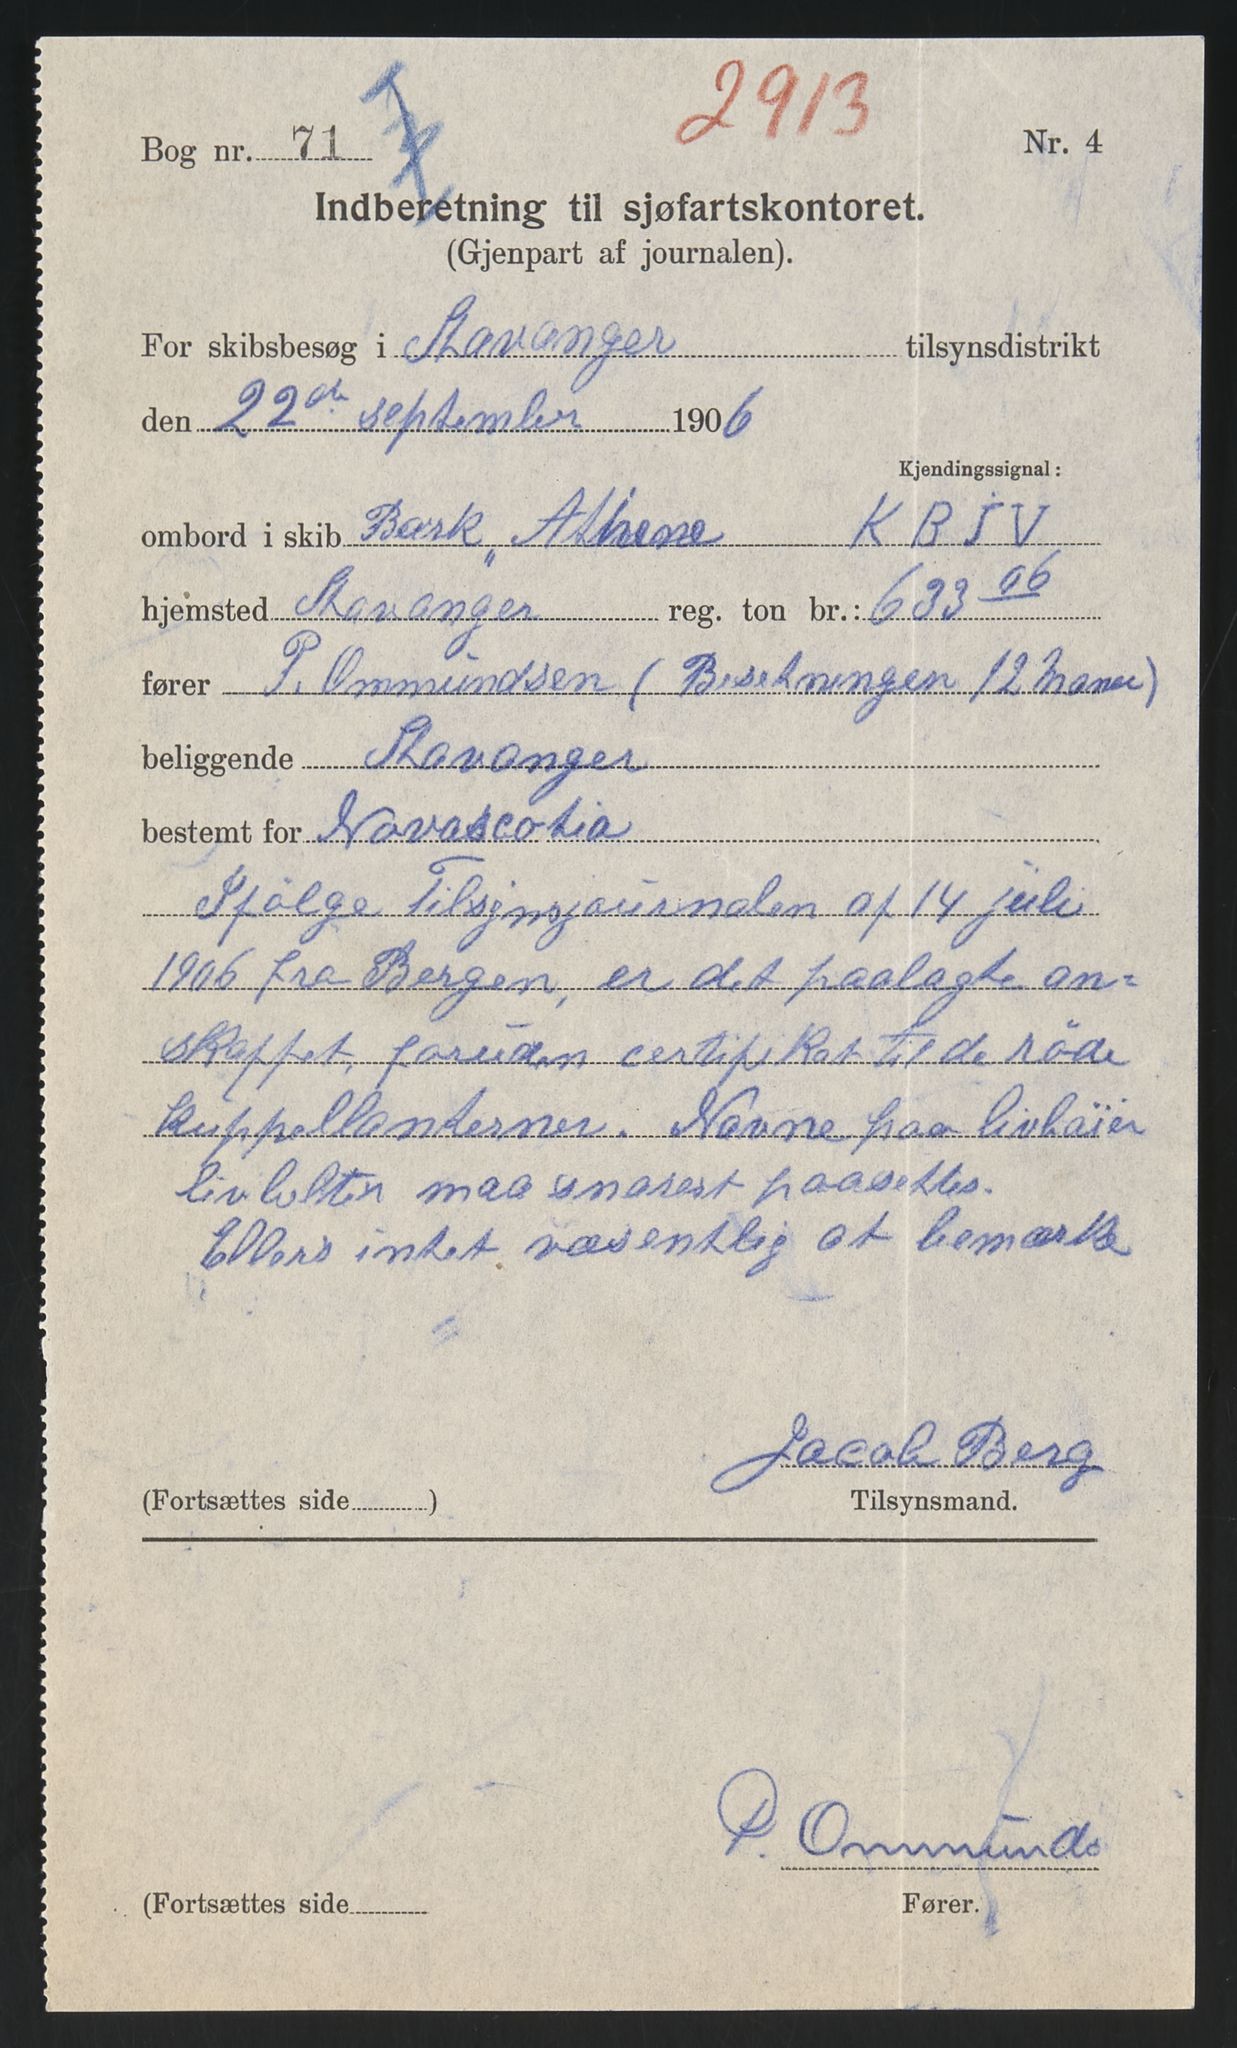 2913
Bog nr. 71
Nr. 4
Indberetning til sjøfartskontoret.
(Gjenpart af journalen).
For skibsbesøg i Stavanger tilsynsdistrikt
den 22de september 1906
Kjendingssignal:
ombord i skib Bark „Athene K B J V
hjemsted Stavanger reg. ton br.: 633 06
fører P. Ommundsen (Besetningen 12 Mand)
beliggende Stavanger
bestemt for Novascotia
Ifølge Tilsynsjournalen af 14 juli
1906 fra Bergen, er det paalagte an=
skaffet, foruden certifikat til de røde
kuppellanterner. Navne paa livbøier
livbelter maa snarest paasettes.
Ellers intet væsentlig at bemærke
Jacob Berg
(Fortsættes side)
Tilsynsmand.
P. Ommunds
(Fortsættes side
Fører.